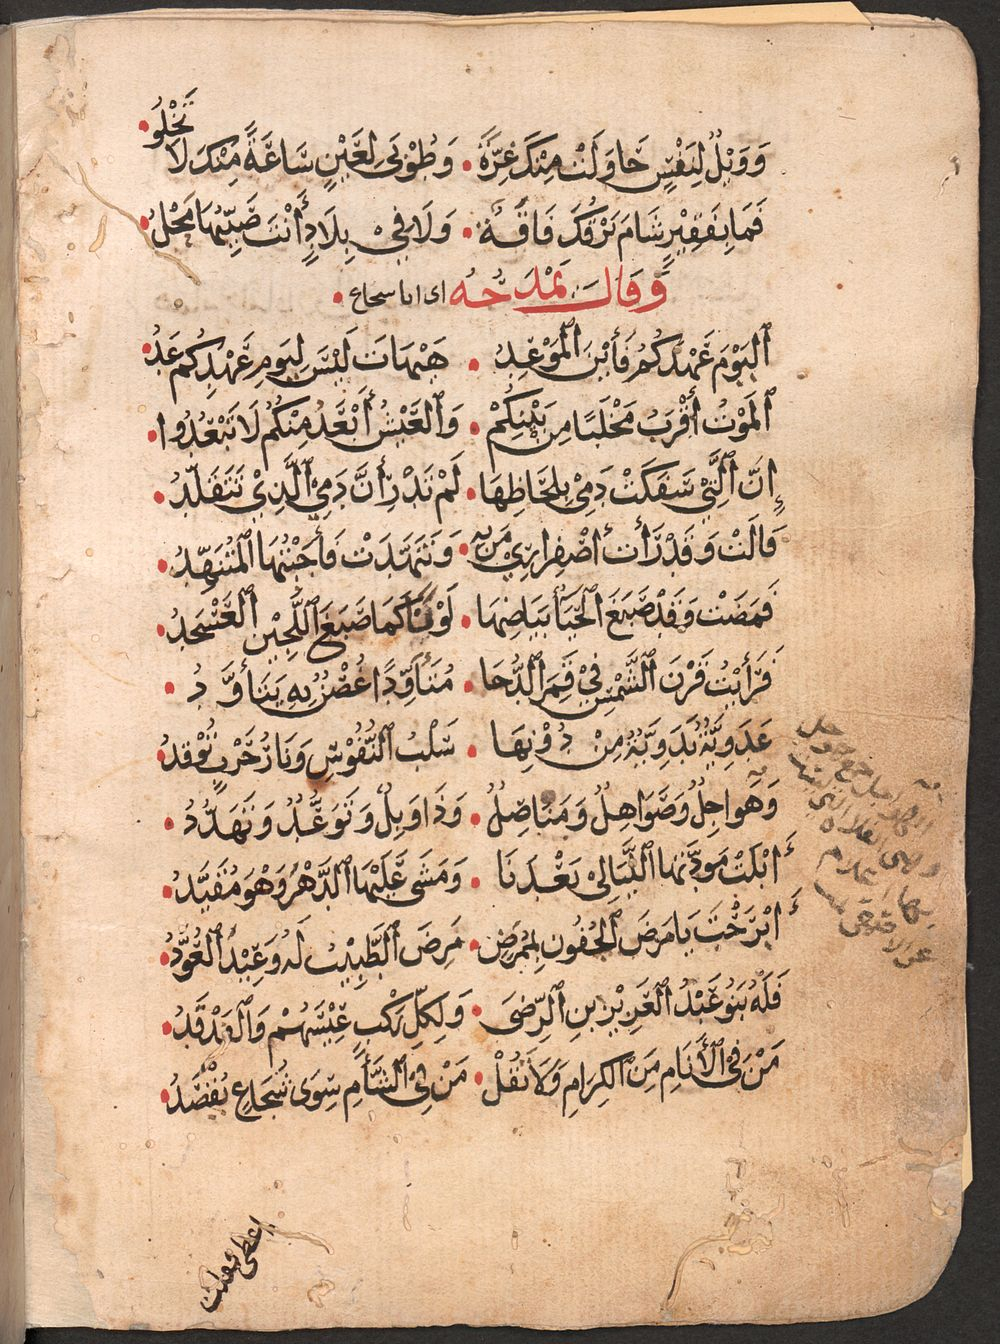 وَوَيْلٌ لِنَفْسٍ حَاوَلَتْ مِنْكَ غِرَّةً • وَطُوْبَى لِعَيْنٍ سَاعَةً مِنْكَ لَا تَخْلُو •
فَمَا بِفَقِيْرٍ شَامَ بَرْقَكَ فَاقَةٌ • وَلَا فِيْ بِلَادٍ أَنْتَ صَيِّبُهَا مَحْلُ •
وَقَالَ يَمْدَحُهُ اى ابا سجاع •
اَلْيَوْمَ عَهْدُكُمُ فَأَيْنَ الْمَوْعِدُ • هَيْهَاتَ لَيْسَ لِيَوْمِ عَهْدِكُمُ غَدُ •
اَلْمَوْتُ أَقْرَبُ مَخْلَبًا مِنْ بَيْنِكُمْ • وَالْعَيْشُ أَبْعَدُ مِنْكُمُ لَا تَبْعُدُوا •
إِنَّ الَّتِيْ سَفَكَتْ دَمِيْ بِلِحَاظِهَا • لَمْ تَدْرِ أَنَّ دَمِيْ الَّذِيْ تَتَقَلَّدُ •
قَالَتْ وَقَدْ رَأَتْ اصْفِرَارِيْ مَنْ بِهِ • وَتَنَهَّدَتْ فَأَجَبْتُهَا الْمُتَنَهِّدُ •
فَمَضَتْ وَقَدْ صَبَغَ الْحَيَاءُ بَيَاضَهَا • لَوْنًا كَمَا صَبَغَ اللُّجَيْنَ الْعَسْجَدُ •
فَرَأَيْتُ قَرْنَ الشَّمْسِ فِيْ قَمَرِ الدُّجَا • مُتَأَوِّدًا غُصْنٌ بِهِ يَتَأَوَّدُ •
عَدَوِيَّةٌ بَدَوِيَّةٌ مِنْ دُوْنِهَا • سَلْبُ النُّفُوْسِ وَنَارُ حَرْبٍ تُوْقَدُ •
وَهَوَاجِلُ وَصَوَاهِلُ وَمَنَاصِلُ • وَذَوَابِلُ وَتَوَعُّدٌ وَتَهَدُّدُ •
أَبْلَتْ مَوَدَّتَهَا اللَّيَالِيْ بَعْدَنَا • وَمَشَى عَلَيْهَا الدَّهْرُ وَهْوَ مُقَيَّدُ •
أَبْرَحْتَ يَا مَرَضَ الْجُفُونِ بِمُمْرَضٍ • مَرِضَ الطَّبِيْبُ لَهُ وَعِيْدَ الْعُوَّدُ •
فَلَهُ بَنُو عَبْدِ الْعَزِيْزِ بْنِ الرِّضَى • وَلِكُلِّ رَكْبٍ عِيْسُهُمْ وَالْفَدْفَدُ •
مَنْ فِي الْأَنَامِ مِنَ الْكِرَامِ وَلَا تَقُلْ • مَنْ فِيْ الشَّأْمِ سِوَى شُجَاعٍ يُقْصَدُ •